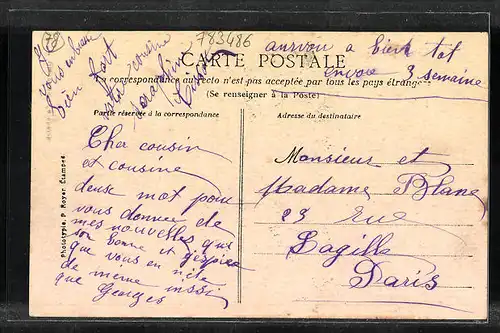 783486
aurvoir a bien tot
envoie 3 semaine
je
vous embrasse
bien fort
votre cousine
Josephine
CARTE POSTALE
La correspondance au recto n'est pas acceptée par tous les pays étrangers
(Se renseigner à la Poste)
Partie réservée à la correspondance
Adresse du destinataire
Cher cousin
et cousine
deux mot pour
vous donner de
mes nouvelles qui
son bonne et j'espère
que vous en
de même
que Georges
Monsieur et
Madame Blanc
23 rue
Lagille
Paris
Phototypie P. Royer Étampes